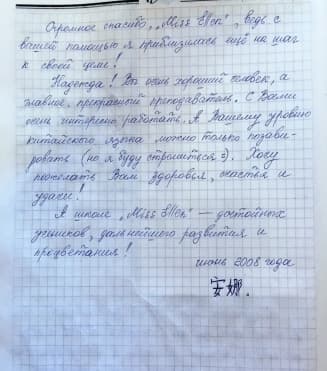 Огромное спасибо, „Miss Ellen", ведь с
вашей помощью я приблизилась ещё на шаг
к своей цели!
Надежда! Вы очень хороший человек, а
главное, прекрасный преподаватель. С Вами
очень интересно работать. А Вашему уровню
китайского языка можно только позави-
довать (но я буду стремиться =). Хочу
пожелать Вам здоровья, счастья и
удачи!
А школе „Miss Ellen" — достойных
учеников, дальнейшего развития и
процветания!
июнь 2008 года
安娜.